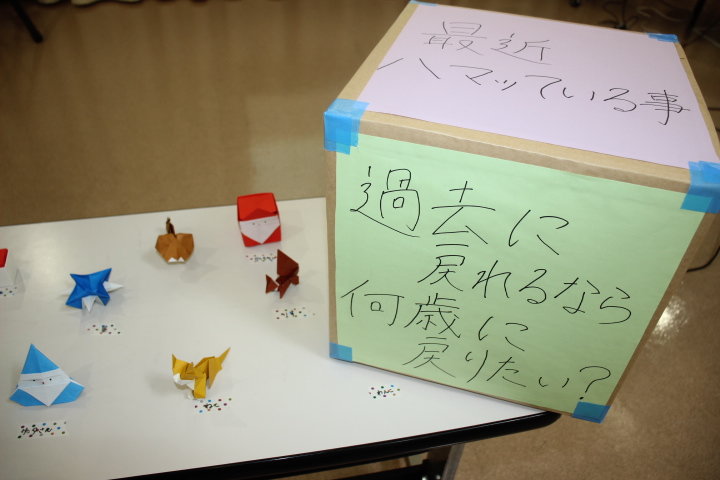 最近
ハマッている事
過去に
戻れるなら
何歳に
戻りたい?
ねこ